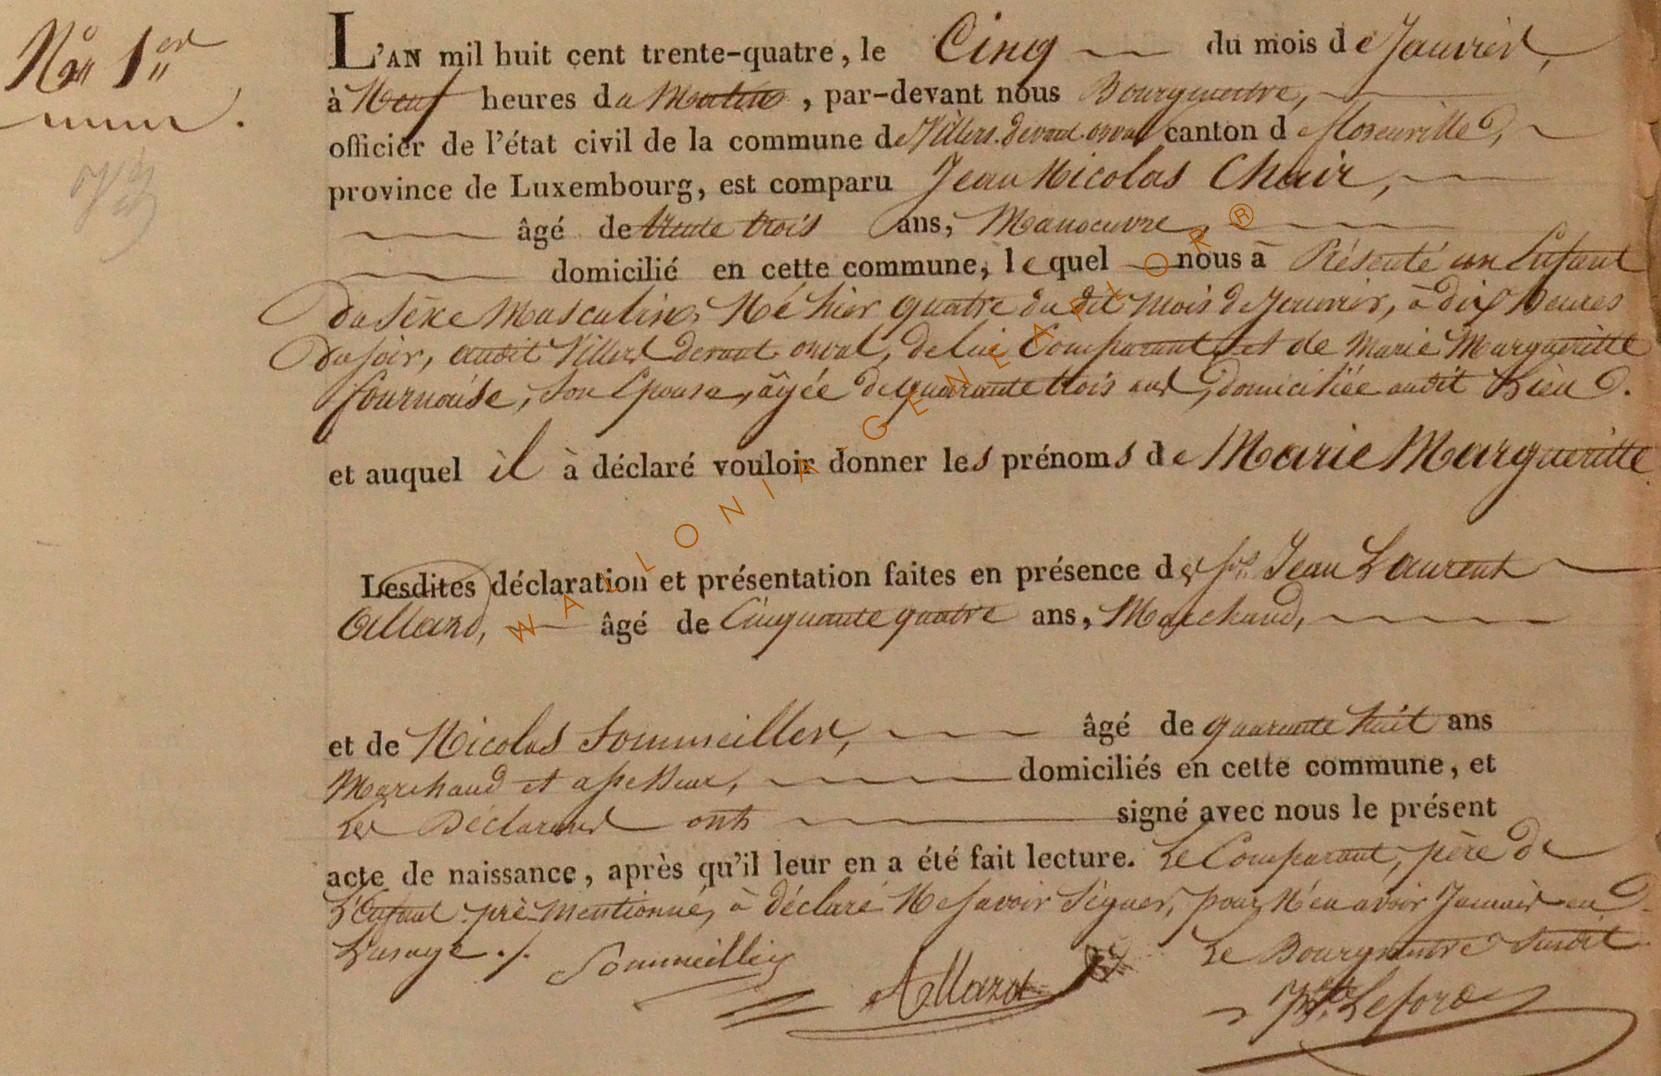 N.º 1.er
L'AN mil huit cent trente-quatre, le Cinq du mois de Janvier,
à Neuf heures du Matin, par-devant nous Bourgmestre,
officier de l'état civil de la commune de Villers-devant-orval canton de florenville,
province de Luxembourg, est comparu Jean Nicolas Chair,
âgé de trente trois ans, Manoeuvre,
domicilié en cette commune, lequel nous à Présenté un Enfant
du sexe Masculin, Né hier quatre du dit mois de Janvier, à dix heures
du soir, audit Villers devant orval, de lui Comparant et de Marie Margueritte
fournoise, son Epouse, âgée de quarante trois ans, domiciliée audit Lieu.
et auquel il à déclaré vouloir donner les prénoms de Marie Margueritte
Lesdites déclaration et présentation faites en présence de Jean Laurent
Allard, âgé de Cinquante quatre ans, Marchand,
et de Nicolas Sommeiller, âgé de quarante huit ans
Marchand et assesseur, domiciliés en cette commune, et
Les Déclarans ont signé avec nous le présent
acte de naissance, après qu'il leur en a été fait lecture. Le Comparant, père de
L'Enfant pré-Mentionné, à déclaré Ne savoir Signer, pour N'en avoir Jamais eu
L'usage ./.
Sommeillier
Allard
Le Bourgmestre Susdit
Leford
WALLONIA GENEALOR®